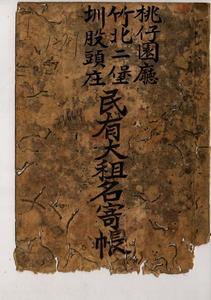 桃仔園廳
竹北二堡
圳股頭庄
民有大租名寄帳